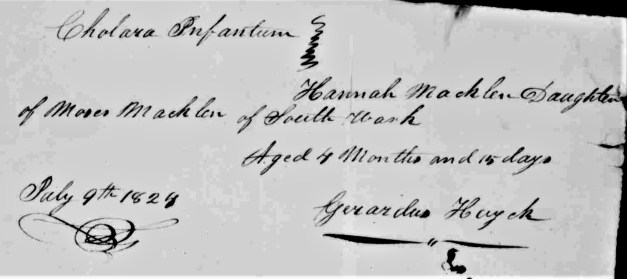 Cholara Infantum
Hannah Macklen Daughter
of Moses Macklen of South Wark
Aged 4 Months and 15 days
July 9th 1828
Gerardus Huyck